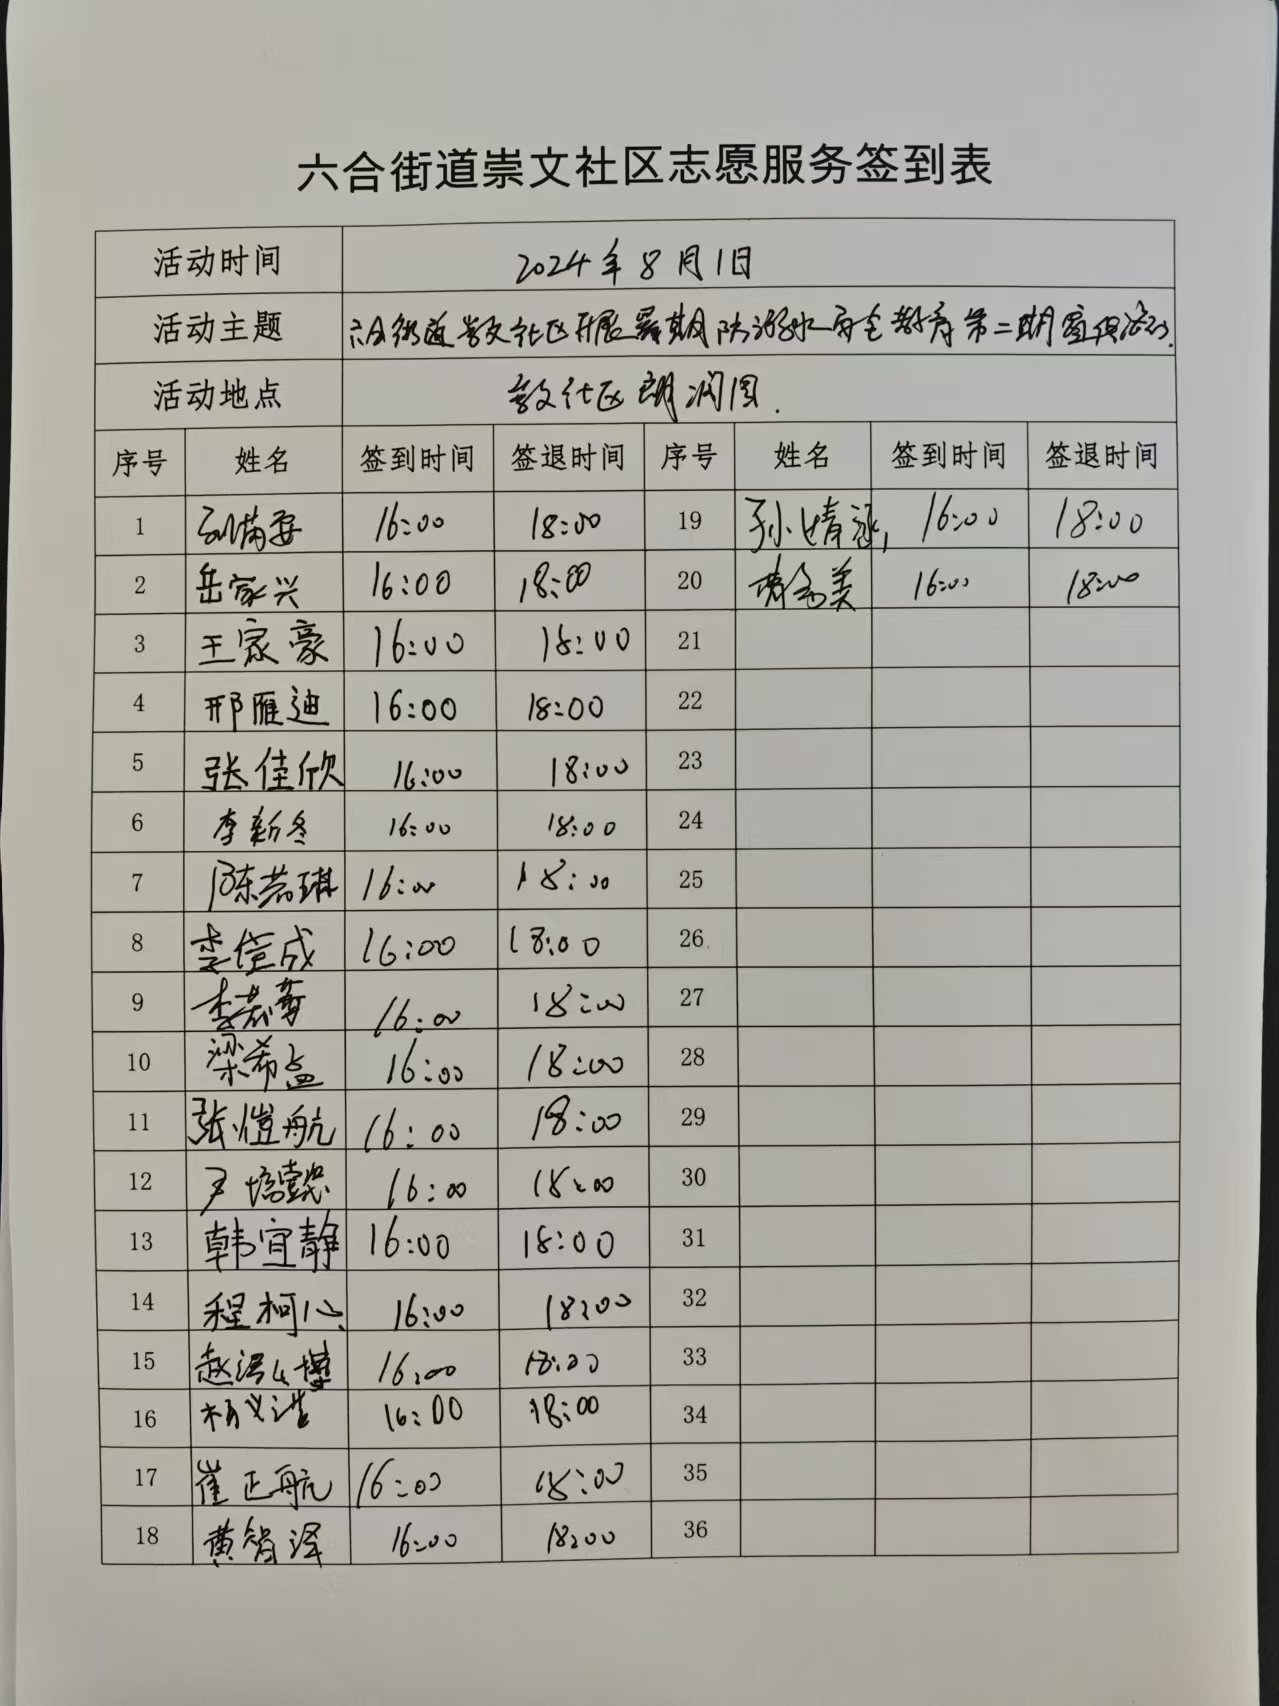 六合街道崇文社区志愿服务签到表
活动时间 2024年8月1日
活动主题 六合街道崇文社区开展暑期防溺水安全教育第二期宣传活动.
活动地点 崇文社区朗润园.
序号 姓名 签到时间 签退时间 序号 姓名 签到时间 签退时间
1 16:00 18:00 19 孙婧涵 16:00 18:00
2 岳家兴 16:00 18:00 20 16:00 18:00
3 王家豪 16:00 18:00 21
4 邢雁迪 16:00 18:00 22
5 张佳欣 16:00 18:00 23
6 李新冬 16:00 18:00 24
7 陈若琪 16:00 18:00 25
8 李 成 16:00 18:00 26
9 李 16:00 18:00 27
10 梁希孟 16:00 18:00 28
11 张恺航 16:00 18:00 29
12 尹 懿 16:00 18:00 30
13 韩宜静 16:00 18:00 31
14 程柯心 16:00 18:00 32
15 赵 博 16:00 18:00 33
16 杨义 16:00 18:00 34
17 崔正航 16:00 18:00 35
18 黄智泽 16:00 18:00 36